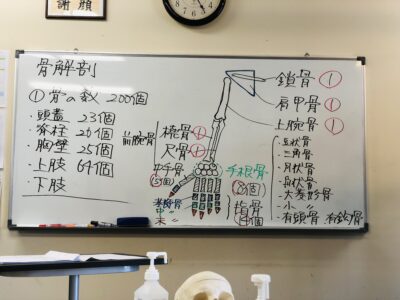 謝顔
骨解剖
①骨の数 200個
・頭蓋 23個
・脊柱 26個
・胸壁 25個
・上肢 64個
・下肢
前腕骨
橈骨①
尺骨①
中手骨
(5個)
手根骨
(8個)
指骨
14個
鎖骨①
肩甲骨①
上腕骨①
豆状骨
三角骨
月状骨
舟状骨
大菱形骨
小 〃
有頭骨 有鈎骨